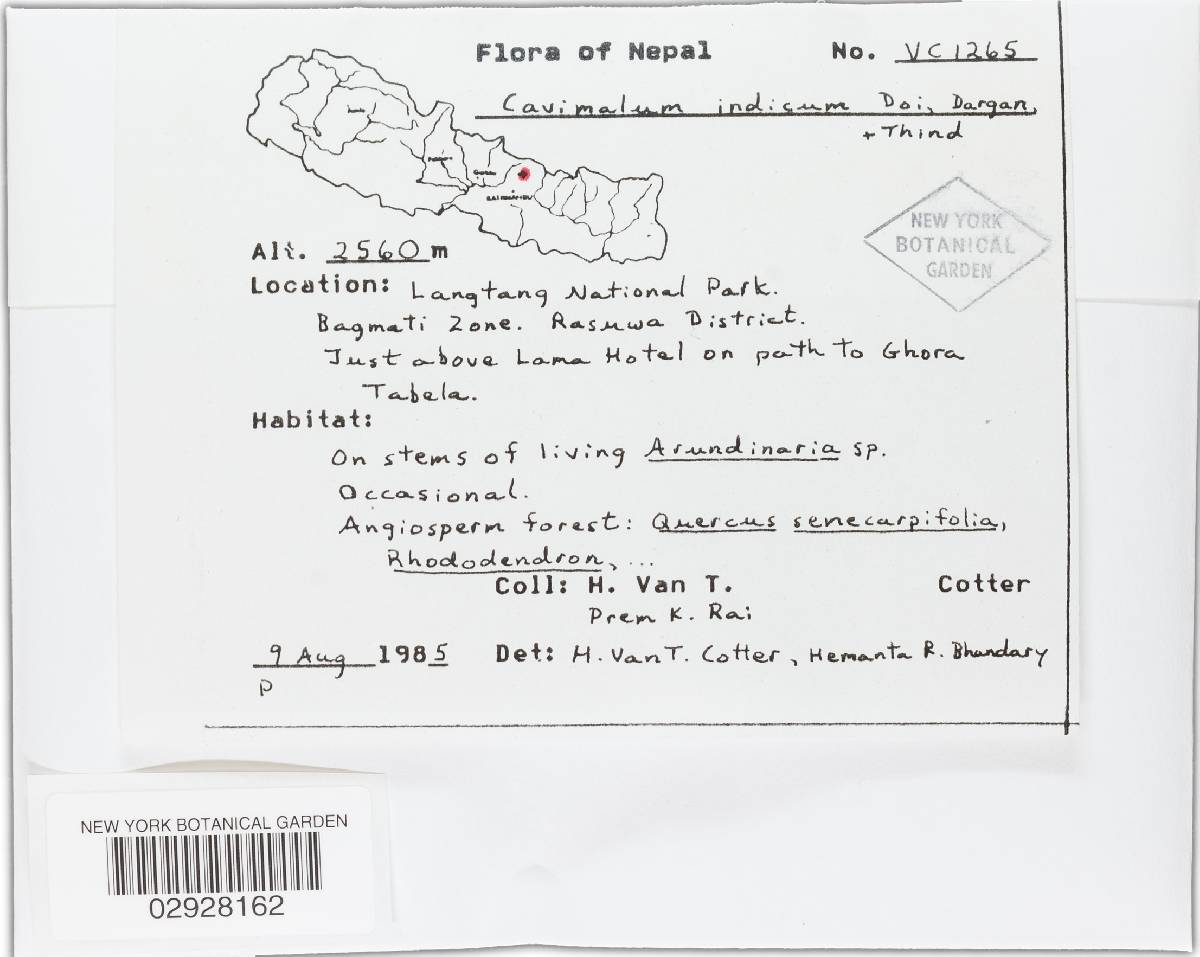 Flora of Nepal No. VC1265
Cavimalum indicum Doi, Dargan,
+ Thind
KATHMANDU
NEW YORK
BOTANICAL
GARDEN
Alt. 2560 m
Location: Langtang National Park.
Bagmati Zone. Rasuwa District.
Just above Lama Hotel on path to Ghora
Tabela.
Habitat:
On stems of living Arundinaria sp.
Occasional.
Angiosperm forest: Quercus senecarpifolia,
Rhododendron, ...
Coll: H. Van T. Cotter
Prem K. Rai
9 Aug 1985 Det: H. Van T. Cotter, Hemanta R. Bhandary
P
NEW YORK BOTANICAL GARDEN
02928162